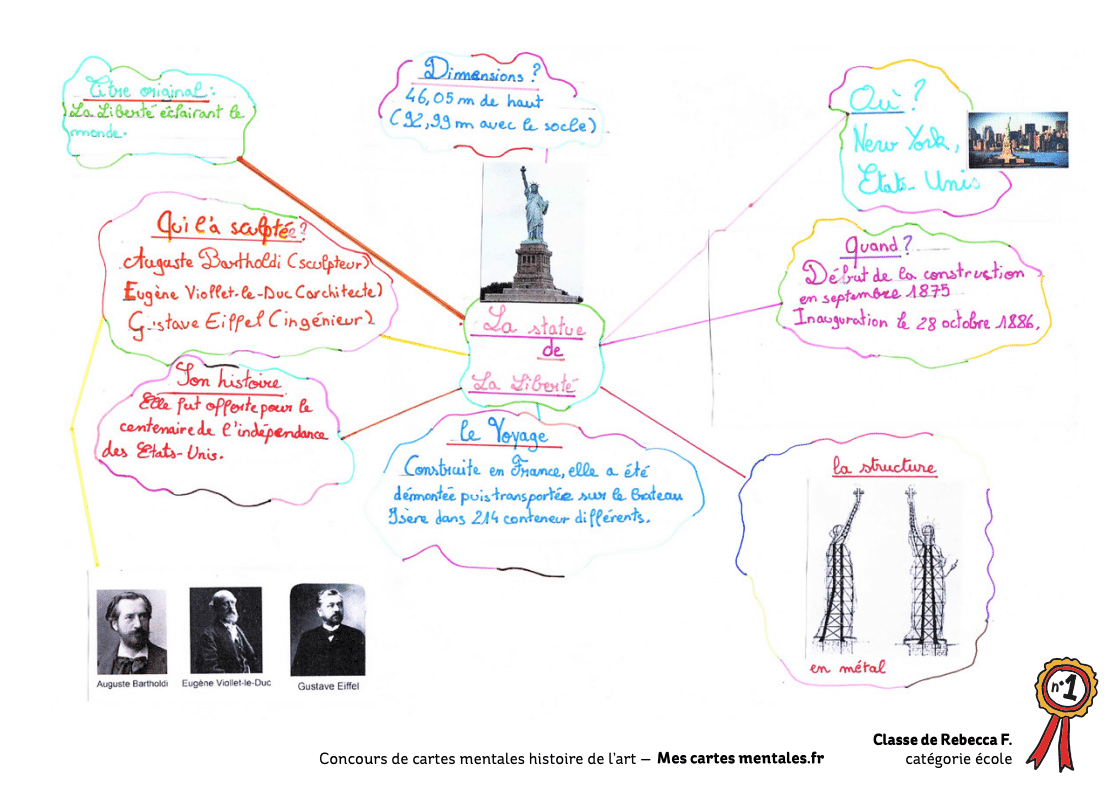 Titre original :
La Liberté éclairant le
monde.
Dimensions ?
46,05 m de haut
(92,99 m avec le socle)
Où ?
New York,
Etats-Unis
Qui l'a sculptée ?
Auguste Bartholdi (sculpteur)
Eugène Viollet-le-Duc (architecte)
Gustave Eiffel (ingénieur)
Quand ?
Début de la construction
en septembre 1875
Inauguration le 28 octobre 1886.
La statue
de
La Liberté
Son histoire
Elle fut offerte pour le
centenaire de l'indépendance
des Etats-Unis.
le Voyage
Construite en France, elle a été
démontée puis transportée sur le Bateau
Isère dans 214 conteneur différents.
la structure
en métal
Auguste Bartholdi
Eugène Viollet-le-Duc
Gustave Eiffel
n°1
Classe de Rebecca F.
catégorie école
Concours de cartes mentales histoire de l'art – Mes cartes mentales.fr